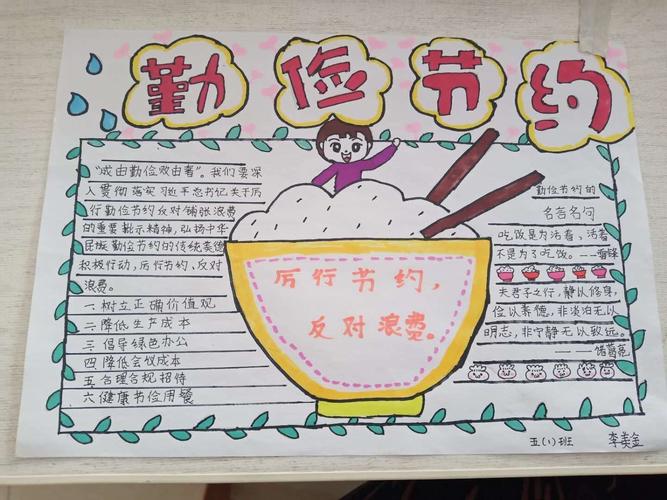 勤俭节约
"成由勤俭败由奢"。我们要深
入贯彻落实习近平总书记关于厉
行勤俭节约反对铺张浪费
的重要批示精神,弘扬中华
民族勤俭节约的传统美德
积极行动,厉行节约、反对
浪费。
一.树立正确价值观
二.降低生产成本
三.倡导绿色办公
四.降低会议成本
五.合理合规招待
六.健康节俭用餐
厉行节约,
反对浪费。
勤俭节约的
名言名句
吃饭是为活着、活着
不是为了吃饭。——雷锋
夫君子之行,静以修身,
俭以养德,非淡泊无以
明志,非宁静无以致远。
———诸葛亮
五(1)班 李美金